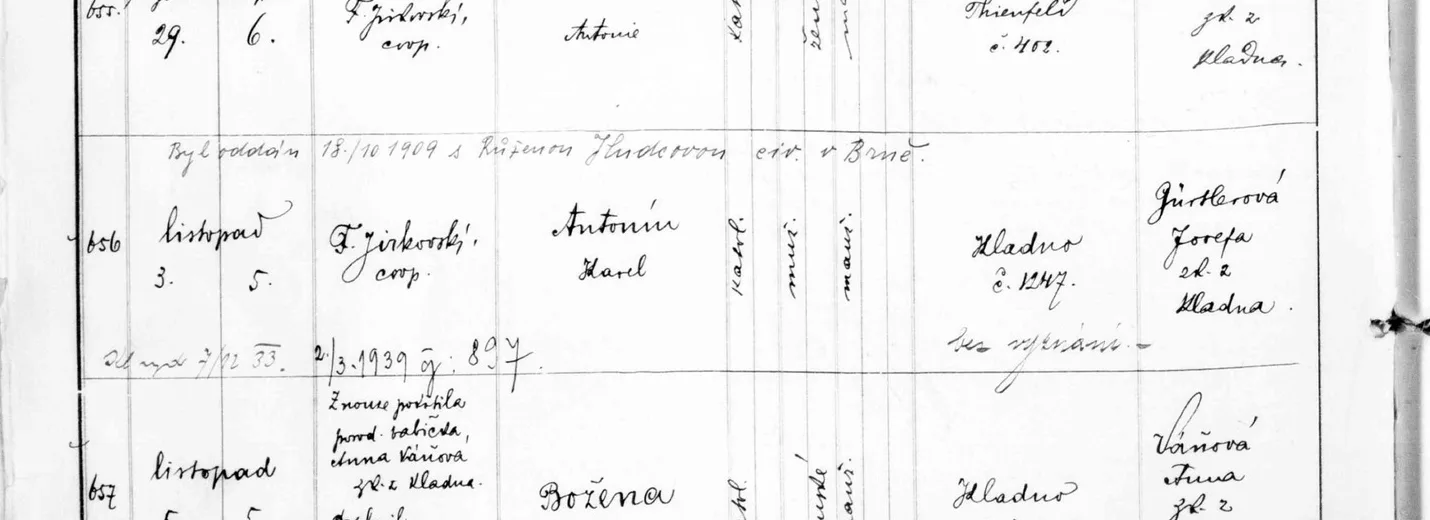 655.
29. 6.
F. Jirkovský,
coop.
Antonie
Thienfeld
č. 402.
zk. z
Kladna.
Byl oddán 18./10 1909 s Růženou Hudcovou civ. v Brně.
656
listopad
3. 5.
F. Jirkovský,
coop.
Antonín
Karel
katol.
muž.
manž.
Kladno
č. 1247.
Gürtlerová
Josefa
zk. z
Kladna.
7/12 33. 2./3.1939 čj: 897.
bez vyznání.
657
listopad
5. 5.
Z nouze pokřtila
porod. babička,
Anna Váňova
zk. z Kladna.
Božena
Kladno
Váňová
Anna
zk. z